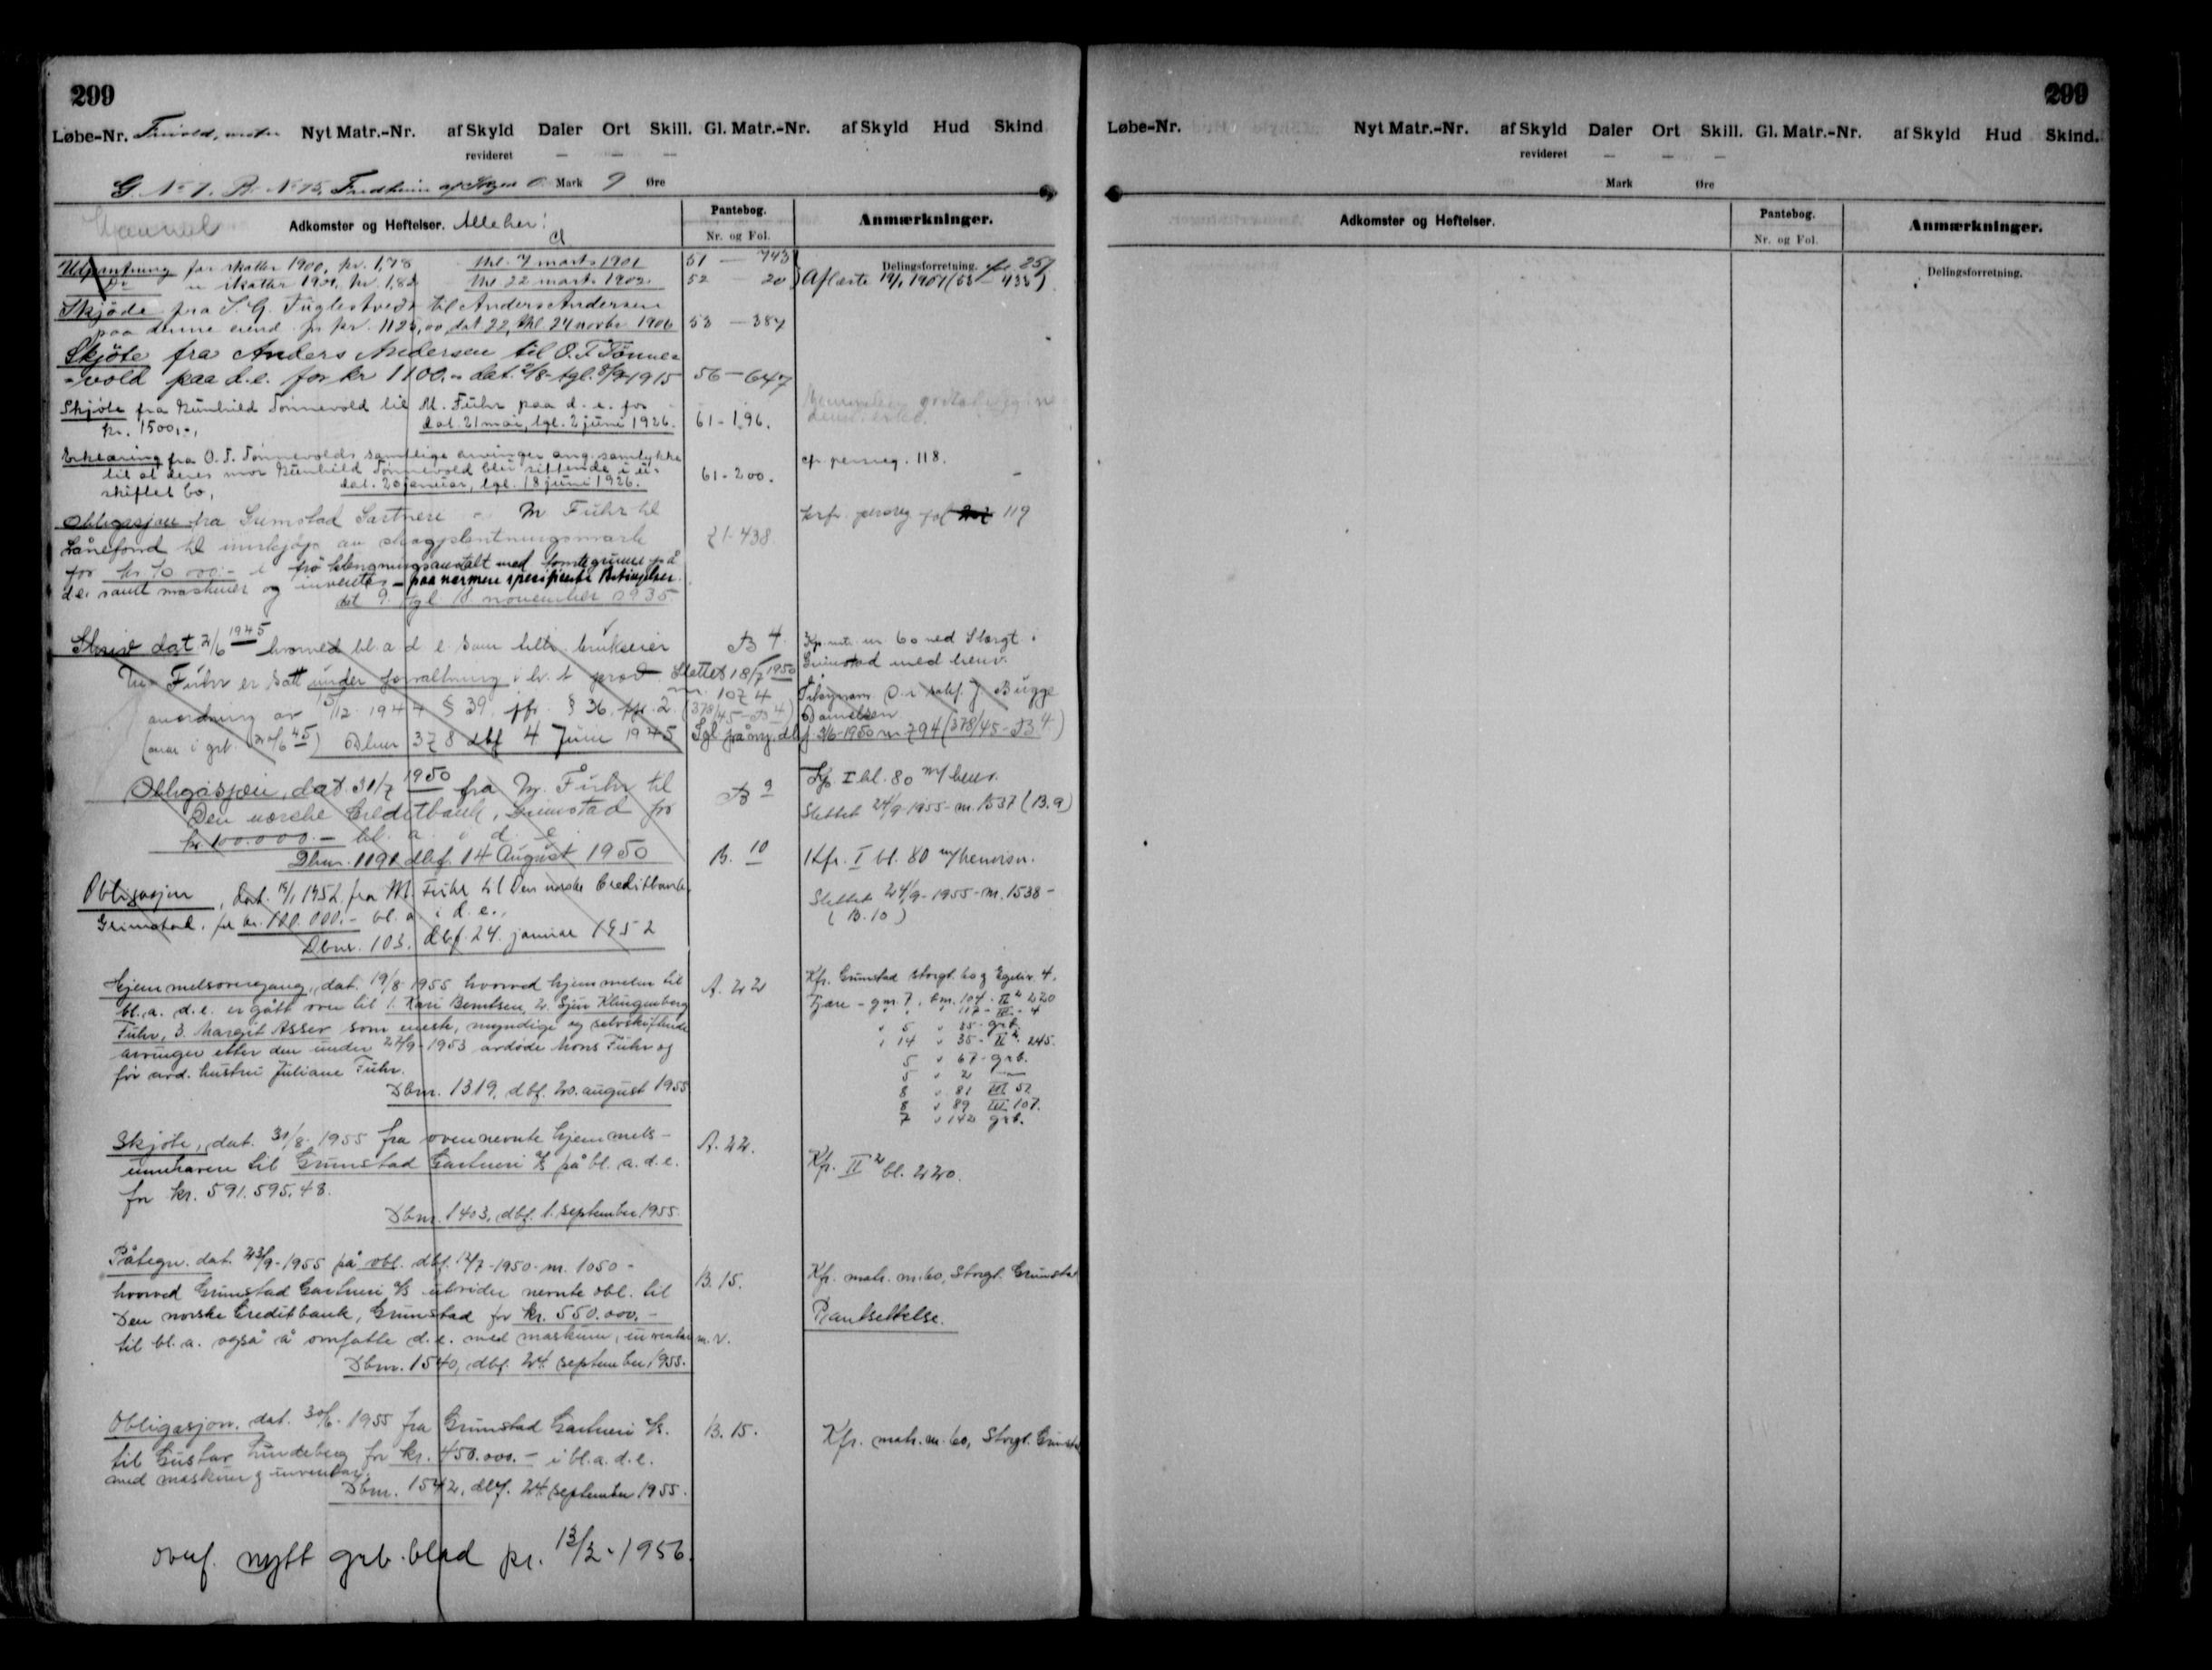 299
Løbe-Nr. Nyt Matr.-Nr. af Skyld Daler Ort Skill. Gl. Matr.-Nr. af Skyld Hud Skind
revideret — — —
G. No 7. B. No 75, Fredheim af Skyld 0 Mark 9 Øre
Adkomster og Heftelser. Pantebog. Anmærkninger.
Nr. og Fol.
Delingsforretning.
Udpantning for skatter 1900, kr. 1,78 thl. 7 marts 1901 51 — 743
Do " skatter 1901, kr. 1,82 thl. 22 marts 1902 52 20 Aflæste
Skjøde fra S. G. Fuglestvedt til Anders Andersen
paa denne eiend. for kr. 1125,00 dat 22, thl. 24 novbr 1906 53 — 387
Skjöte fra Anders Andersen til O. T. Tönne-
vold paa d.e. for kr 1100.- dat. tgl. 8/9-1915 56 — 647
Skjöte fra Gunhild Tönnevold til M. Führ paa d. e. for
kr. 1500,-, dat. 21 mai, tgl. 2 juni 1926. 61-196.
Erklæring fra O. T. Tönnevolds samtlige arvinger ang. samtykke
til at deres mor Gunhild Tönnevold blir sittende i u-
skiftet bo, dat. 20 januar, tgl. 18 juni 1926. 61-200. cfr. persreg. 118.
Obligasjon fra Grimstad Gartneri v. M. Führ til
Lånefond til innkjøp av skogplantningsmark 71-438 119
for kr. 10 000:- i frö klengningsanstalt med tomtegrunn på
d.e. samt maskiner og inventar - paa nærmere spesifiserte Betingelser.
dat 9. tgl 11. november 1935.
Skriv dat 2/6 1945 hvorved bl. a d e som tilh. brukseier B 4. Kfr. mtr. nr. 60 ved Storgt i
Führ er satt under forvaltning i h. t. prov. Slettet 18/7 1950 Grimstad med henv.
anordning av 15/12 1944 § 39 jfr. § 36, nr. 1074 (378/45 - B 4)
Dbnr 378 dbf 4 Juni 1945 Tgl. på ny. dbf. 3/6-1950 nr 794 (378/45 - B. 4)
Obligasjon, dat. 31/7 1950 fra M. Führ til B 9 Kfr. I bl. 80 m/ henv.
Den norske Creditbank, Grimstad for Slettet 24/9-1955 - nr. 1537 (B. 9)
kr. 100.000.- bl. a i d e
Dbnr. 1191 dbf. 14 August 1950 B. 10 Kfr. I bl. 80 m/henvisn.
Obligasjon, dat. 19/1 1952 fra M. Führ til Den norske Creditbank,
Grimstad, for kr. 100.000.- bl. a i d.e., Slettet 24/9-1955 - nr. 1538 -
Dbnr. 103. dbf. 24. januar 1952 (B. 10)
Hjemmelsovergang, dat. 19/8 1955 hvorved hjemmelen til A. 22 Kfr. Grimstad Storgt. 60 og
bl. a. d. e. er gått over til 1. Kari Berntsen, 2. Sjur Klingenberg
Führ, 3. Margit Asser som eneste, myndige og selvskiftende
arvinger etter den under 22/9-1953 avdøde Mons Führ og
før avd. hustru Juliane Führ.
Dbnr. 1319, dbf. 20. august 1955
Fjære - gnr. 7, bnr. 104 - II 2 220
" " " 117 - III - 4
" 5 " 85 - grb.
" 14 " 35 - II 2. 245.
5 " 67 - grb.
5 " 2 —
8 " 81 III 52
8 " 89 III 107.
7 " 142 grb.
Skjöte, dat. 31/8-1955 fra ovennevnte hjemmels- A. 22.
innehavere til Grimstad Gartneri A/S på bl. a. d. e. Kfr. II 2 bl. 220.
for kr. 591.595.48.
Dbnr. 1403, dbf. 1. september 1955.
Påtegn. dat. 23/9-1955 på obl. dbf. 12/7-1950 - nr. 1050 -
hvorved Grimstad Gartneri A/S utvider nevnte obl. til B. 15. Kfr. matr. nr. 60, Storgt. Grimstad
Den norske Creditbank, Grimstad for kr. 550.000.- Pantsettelse.
til bl. a. også å omfatte d. e. med maskiner, inventar m. v.
Dbnr. 1540, dbf. 24. september 1955.
Obligasjon. dat. 30/6-1955 fra Grimstad Gartneri A/S. B. 15. Kfr. matr. nr. 60, Storgt. Grimstad
til Gustav Lindeberg for kr. 450.000.- i bl. a. d. e.
med maskiner og inventar.
Dbnr. 1542, dbf. 24. september 1955.
overf. nytt grb. blad pr. 13/2-1956.
299
Løbe-Nr. Nyt Matr.-Nr. af Skyld Daler Ort Skill. Gl. Matr.-Nr. af Skyld Hud Skind.
revideret — — —
Mark Øre
Adkomster og Heftelser. Pantebog. Anmærkninger.
Nr. og Fol.
Delingsforretning.